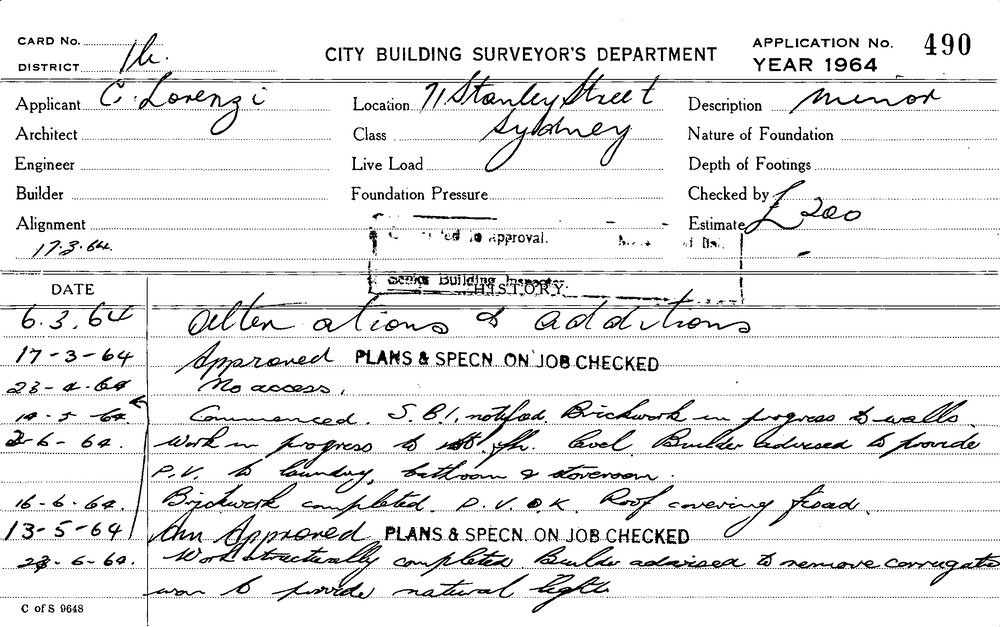 CARD No.
DISTRICT
CITY BUILDING SURVEYOR'S DEPARTMENT
APPLICATION No. 490
YEAR 1964
Applicant C. Lorenzi
Location 71 Stanley Street
Description minor
Architect
Class Sydney
Nature of Foundation
Engineer
Live Load
Depth of Footings
Builder
Foundation Pressure
Checked by
Alignment
Estimate £200
17.3.64.
to Approval.
Senior Building Inspector.
DATE
HISTORY
6.3.64 Alterations & additions
17-3-64 Approved PLANS & SPECN. ON JOB CHECKED
23-4-64 No access.
14-5-64. Commenced. S.B.I. notified. Brickwork in progress to walls.
2-6-64. Work in progress to level Builder advised to provide
P.V. to laundry, bathroom & storeroom.
16-6-64. Brickwork completed. P.V. O.K. Roof covering fixed.
13-5-64 Am Approved PLANS & SPECN. ON JOB CHECKED
23-6-64. Work structurally completed. Builder advised to remove corrugate
iron to provide natural light
C of S 9648